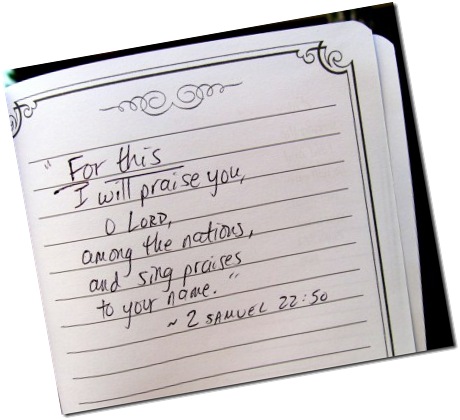 "For this
I will praise you,
O LORD,
among the nations,
and sing praises
to your name."
~ 2 SAMUEL 22:50